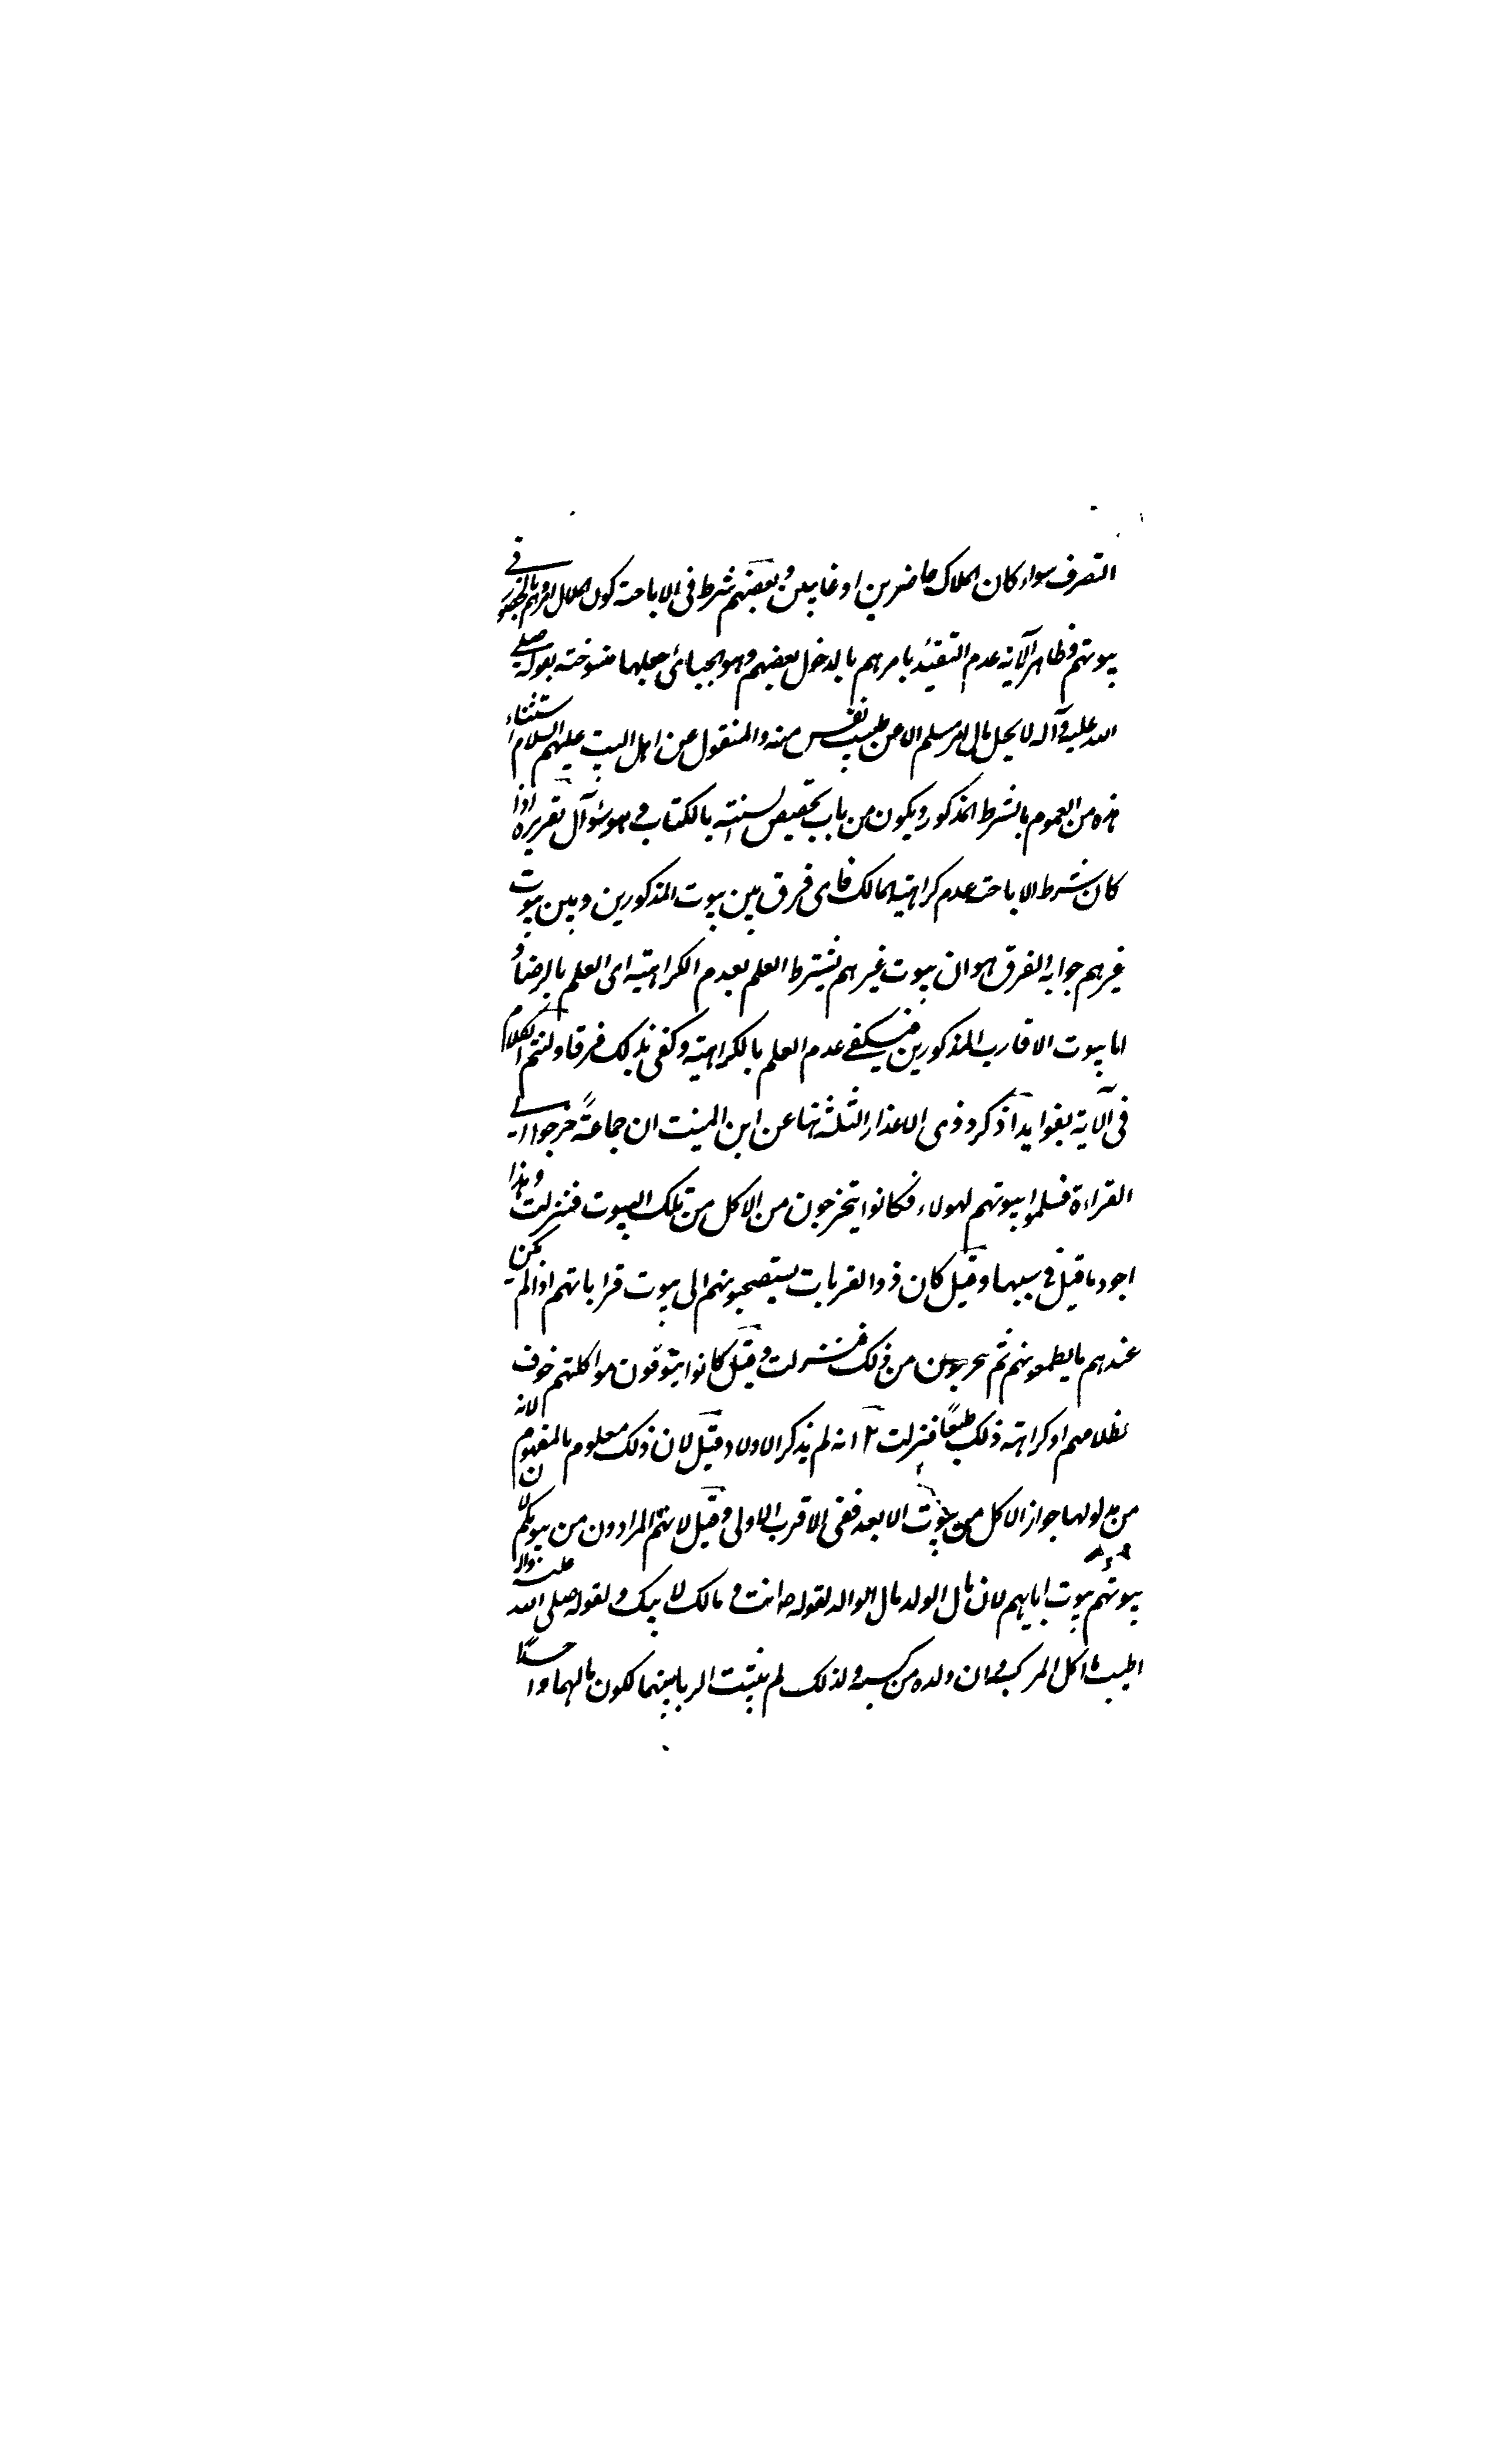 التصرف سواء كان الملاك حاضرين او غايبين و بعضهم شرط فى الاباحة كون الملاك امرهم بالحضور فى
بيوتهم و ظاهر الآية عدم التقيد بامرهم بالدخول بعضهم وهو الجبائى جعلها منسوخته بقوله صلى
الله عليه وآله لا يحل مال امرء مسلم الا من طيب نفس منه والمنقول عن اهل البيت عليهم السلام استثناء
هذه من العموم بالشرط المذكور ويكون من باب تخصيص السنة بالكتاب و هو سؤال تقريره اذا
كان شرط الاباحة عدم كراهية المالك فاى فرق بين بيوت المذكورين و بين بيوت
غيرهم جوابه الفرق هو ان بيوت غيرهم يشترط العلم بعدم الكراهية اى العلم بالرضا و
اما بيوت الاقارب المذكورين فيكفى عدم العلم بالكراهية وكفى بذلك فرقا ولنتم الكلام
فى الآية بفوايد ا ذكر ذوى الاعذار الثلثة هنا عن ابن المسيب ان جماعةً خرجوا الى
القراءة فسلموا بيوتهم لهولاء فكانوا يتحرجون من الاكل من تلك البيوت فنزلت وهذا
اجود ما قيل فى سببها وقيل كان ذوا القربات يستصحبونهم الى بيوت قراباتهم اذا لم يكن
عندهم ما يطعمونهم ثم يتحرجون من ذلك فنزلت و قيل كانوا يتوقون مواكلتهم خوف
لظلامهم او كراهته ذلك طبعًا فنزلت ٢ انه لم يذكر الاولاد قيل لان ذلك معلوم بالمفهوم لانه
من مدلولها جواز الاكل من بيوت الابعد ففى الاقرب الاولى و قيل لانهم المرادون من بيوتكم لان
بيوتهم بيوت ابايهم لان مال الولد مال الوالد لقوله ص انت و مالك لابيك و لقوله صلى الله عليه واله
اطيب ما اكل المرء كسبه وان ولده من كسبه ولذلك لم يثبت الربا بينهما لكون مالهما واحدًا